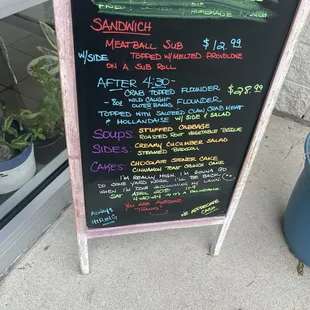 SANDWICH
MEATBALL SUB $12.99
W/SIDE TOPPED W/MELTED PROVOLONE
ON A SUB ROLL
AFTER 4:30-
CRAB TOPPED FLOUNDER $28.99
8oz WILD CAUGHT FLOUNDER
OUTER BANKS
TOPPED WITH CLAW CRAB MEAT
& HOLLANDAISE W/ SIDE & SALAD
SOUPS: STUFFED CABBAGE
ROASTED ROOT VEGETABLE BISQUE
SIDES: CREAMY CUCUMBER SALAD
STEAMED BROCCOLI
CAKES: CHOCOLATE CAKE
CINNAMON TOAST CRUNCH CAKE
I'M REALLY HIGH, I'M GONNA GO
DO SOME YARD WORK. I'LL BE BACK
WHEN I'M DONE
SAT APRIL
ALWAYS
HIRING
YOU ARE AWESOME
"THANKS"
WE APPRECIATE
CASH